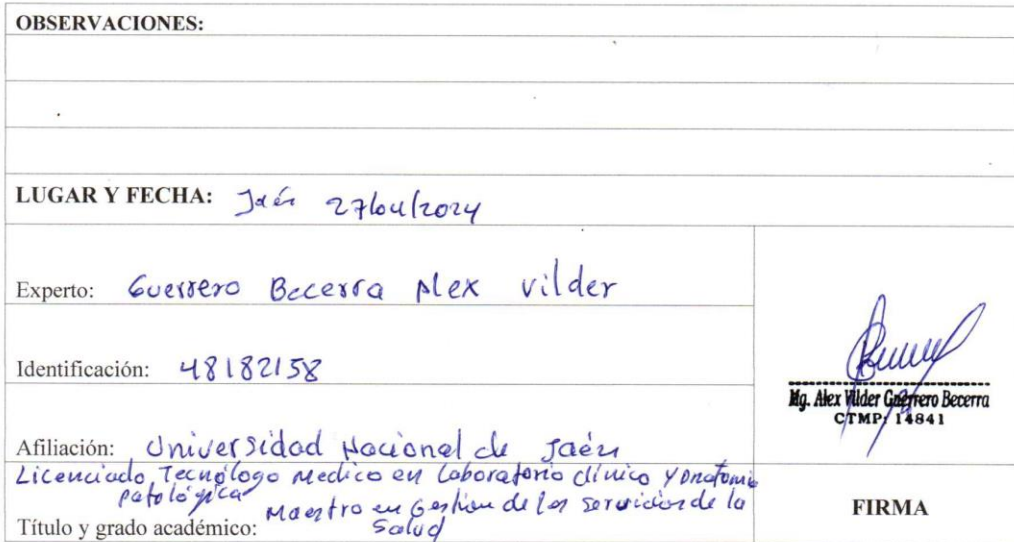 OBSERVACIONES:
LUGAR Y FECHA: Jaén 27/04/2024
Experto: Guerrero Becerra Alex Vilder
Identificación: 48182158
Afiliación: Universidad Nacional de Jaén
Licenciado Tecnólogo Medico en Laboratorio clínico y Anatomia
patológica
Maestro en Gestion de los servicios de la
Título y grado académico: Salud
Mg. Alex Vilder Guerrero Becerra
CTMP: 14841
FIRMA